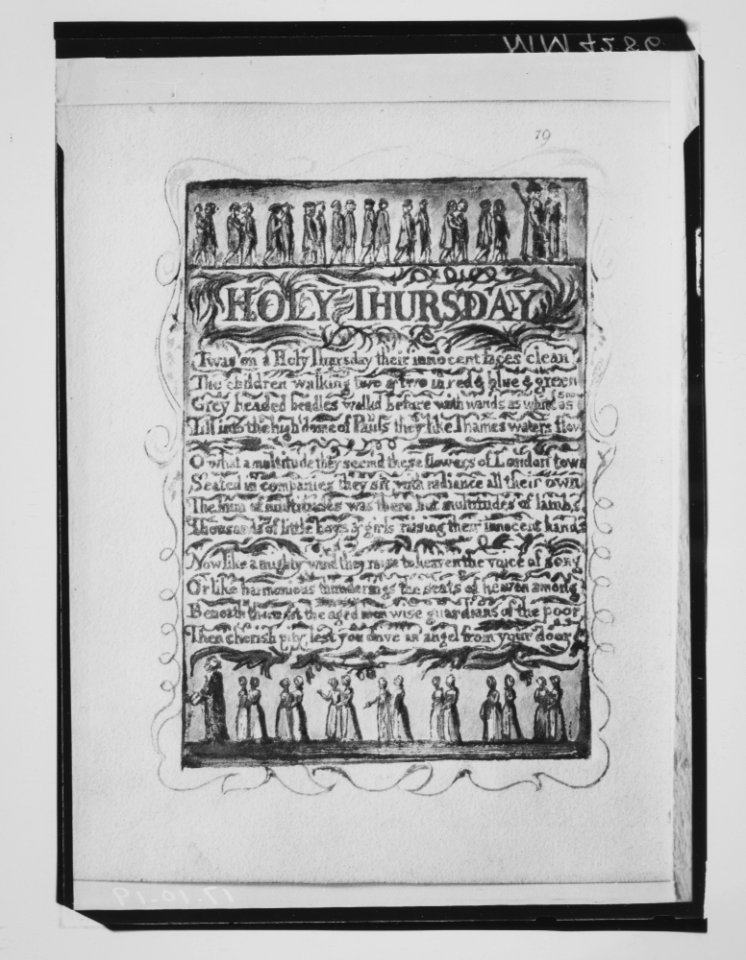 MM 4286
19
HOLY THURSDAY
Twas on a Holy Thursday their innocent faces clean
The children walking two & two in red & blue & green
Grey headed beadles walkd before with wands as white as snow
Till into the high dome of Pauls they like Thames waters flow
O what a multitude they seemd these flowers of London town
Seated in companies they sit with radiance all their own
The hum of multitudes was there but multitudes of lambs
Thousands of little boys & girls raising their innocent hands
Now like a mighty wind they raise to heaven the voice of song
Or like harmonious thunderings the seats of heaven among
Beneath them sit the aged men wise guardians of the poor
Then cherish pity, lest you drive an angel from your door